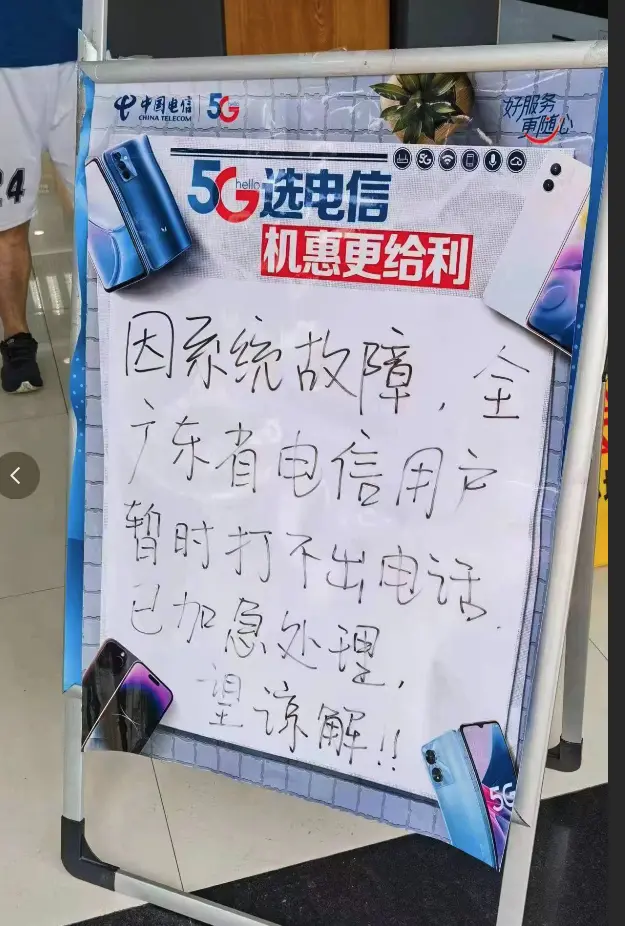 中国电信 5G
CHINA TELECOM
好服务
更随心
5G
5G hello 选电信
机惠更给利
因系统故障,全
广东省电信用户
暂时打不出电话.
已加急处理,
望谅解!!
5G
24